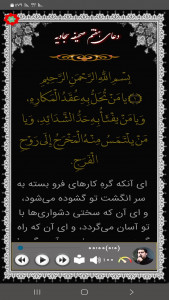 دعای هفتم صحیفه سجادیه
بِسْمِ اللَّهِ الرَّحْمَنِ الرَّحِيمِ
يَا مَنْ تُحَلُّ بِهِ عُقَدُ الْمَكَارِهِ،
وَ يَا مَنْ يَفْثَأُ بِهِ حَدُّ الشَّدَائِدِ، وَ يَا
مَنْ يُلْتَمَسُ مِنْهُ الْمَخْرَجُ إِلَى رَوْحِ
الْفَرَجِ.
ای آنکه گره کارهای فرو بسته به
سر انگشت تو گشوده می‌شود،
و ای آن که سختی دشواری‌ها با
تو آسان می‌گردد، و ای آن که راه